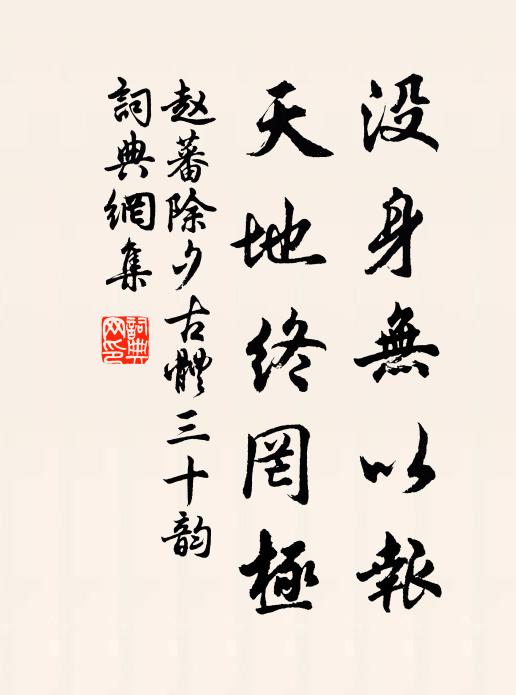 没身無以報
天地終罔極
赵蕃除夕古體三十韵
詞典網集
詞典
网印